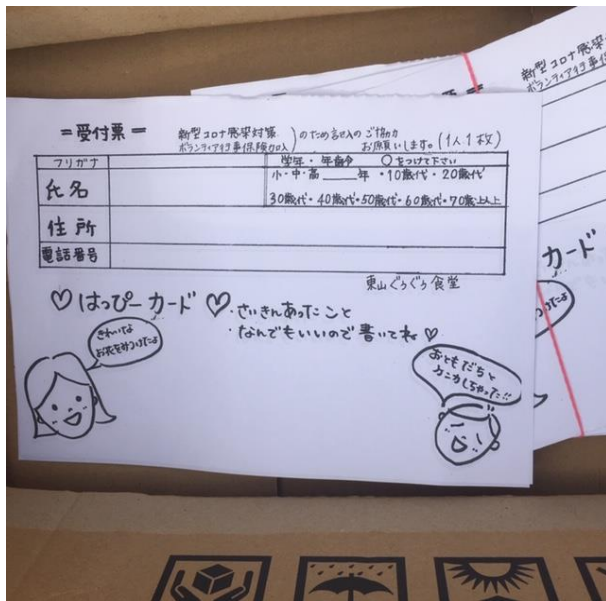 ＝受付票＝
新型コロナ感染対策
ボランティア行事保険加入)のため記入のご協力
お願いします。(1人1枚)
フリガナ
学年・年齢 ○をつけて下さい
氏名
小・中・高___年・10歳代・20歳代
30歳代・40歳代・50歳代・60歳代・70歳以上
住所
電話番号
東山ぐぅぐぅ食堂
♡はっぴーカード♡
・さいきんあったこと
・なんでもいいので書いてね♡
きれいな
お花をみつけたよ
おともだちと
ケンカしちゃった!!
新型コロナ感染
ボランティア行事保
カード